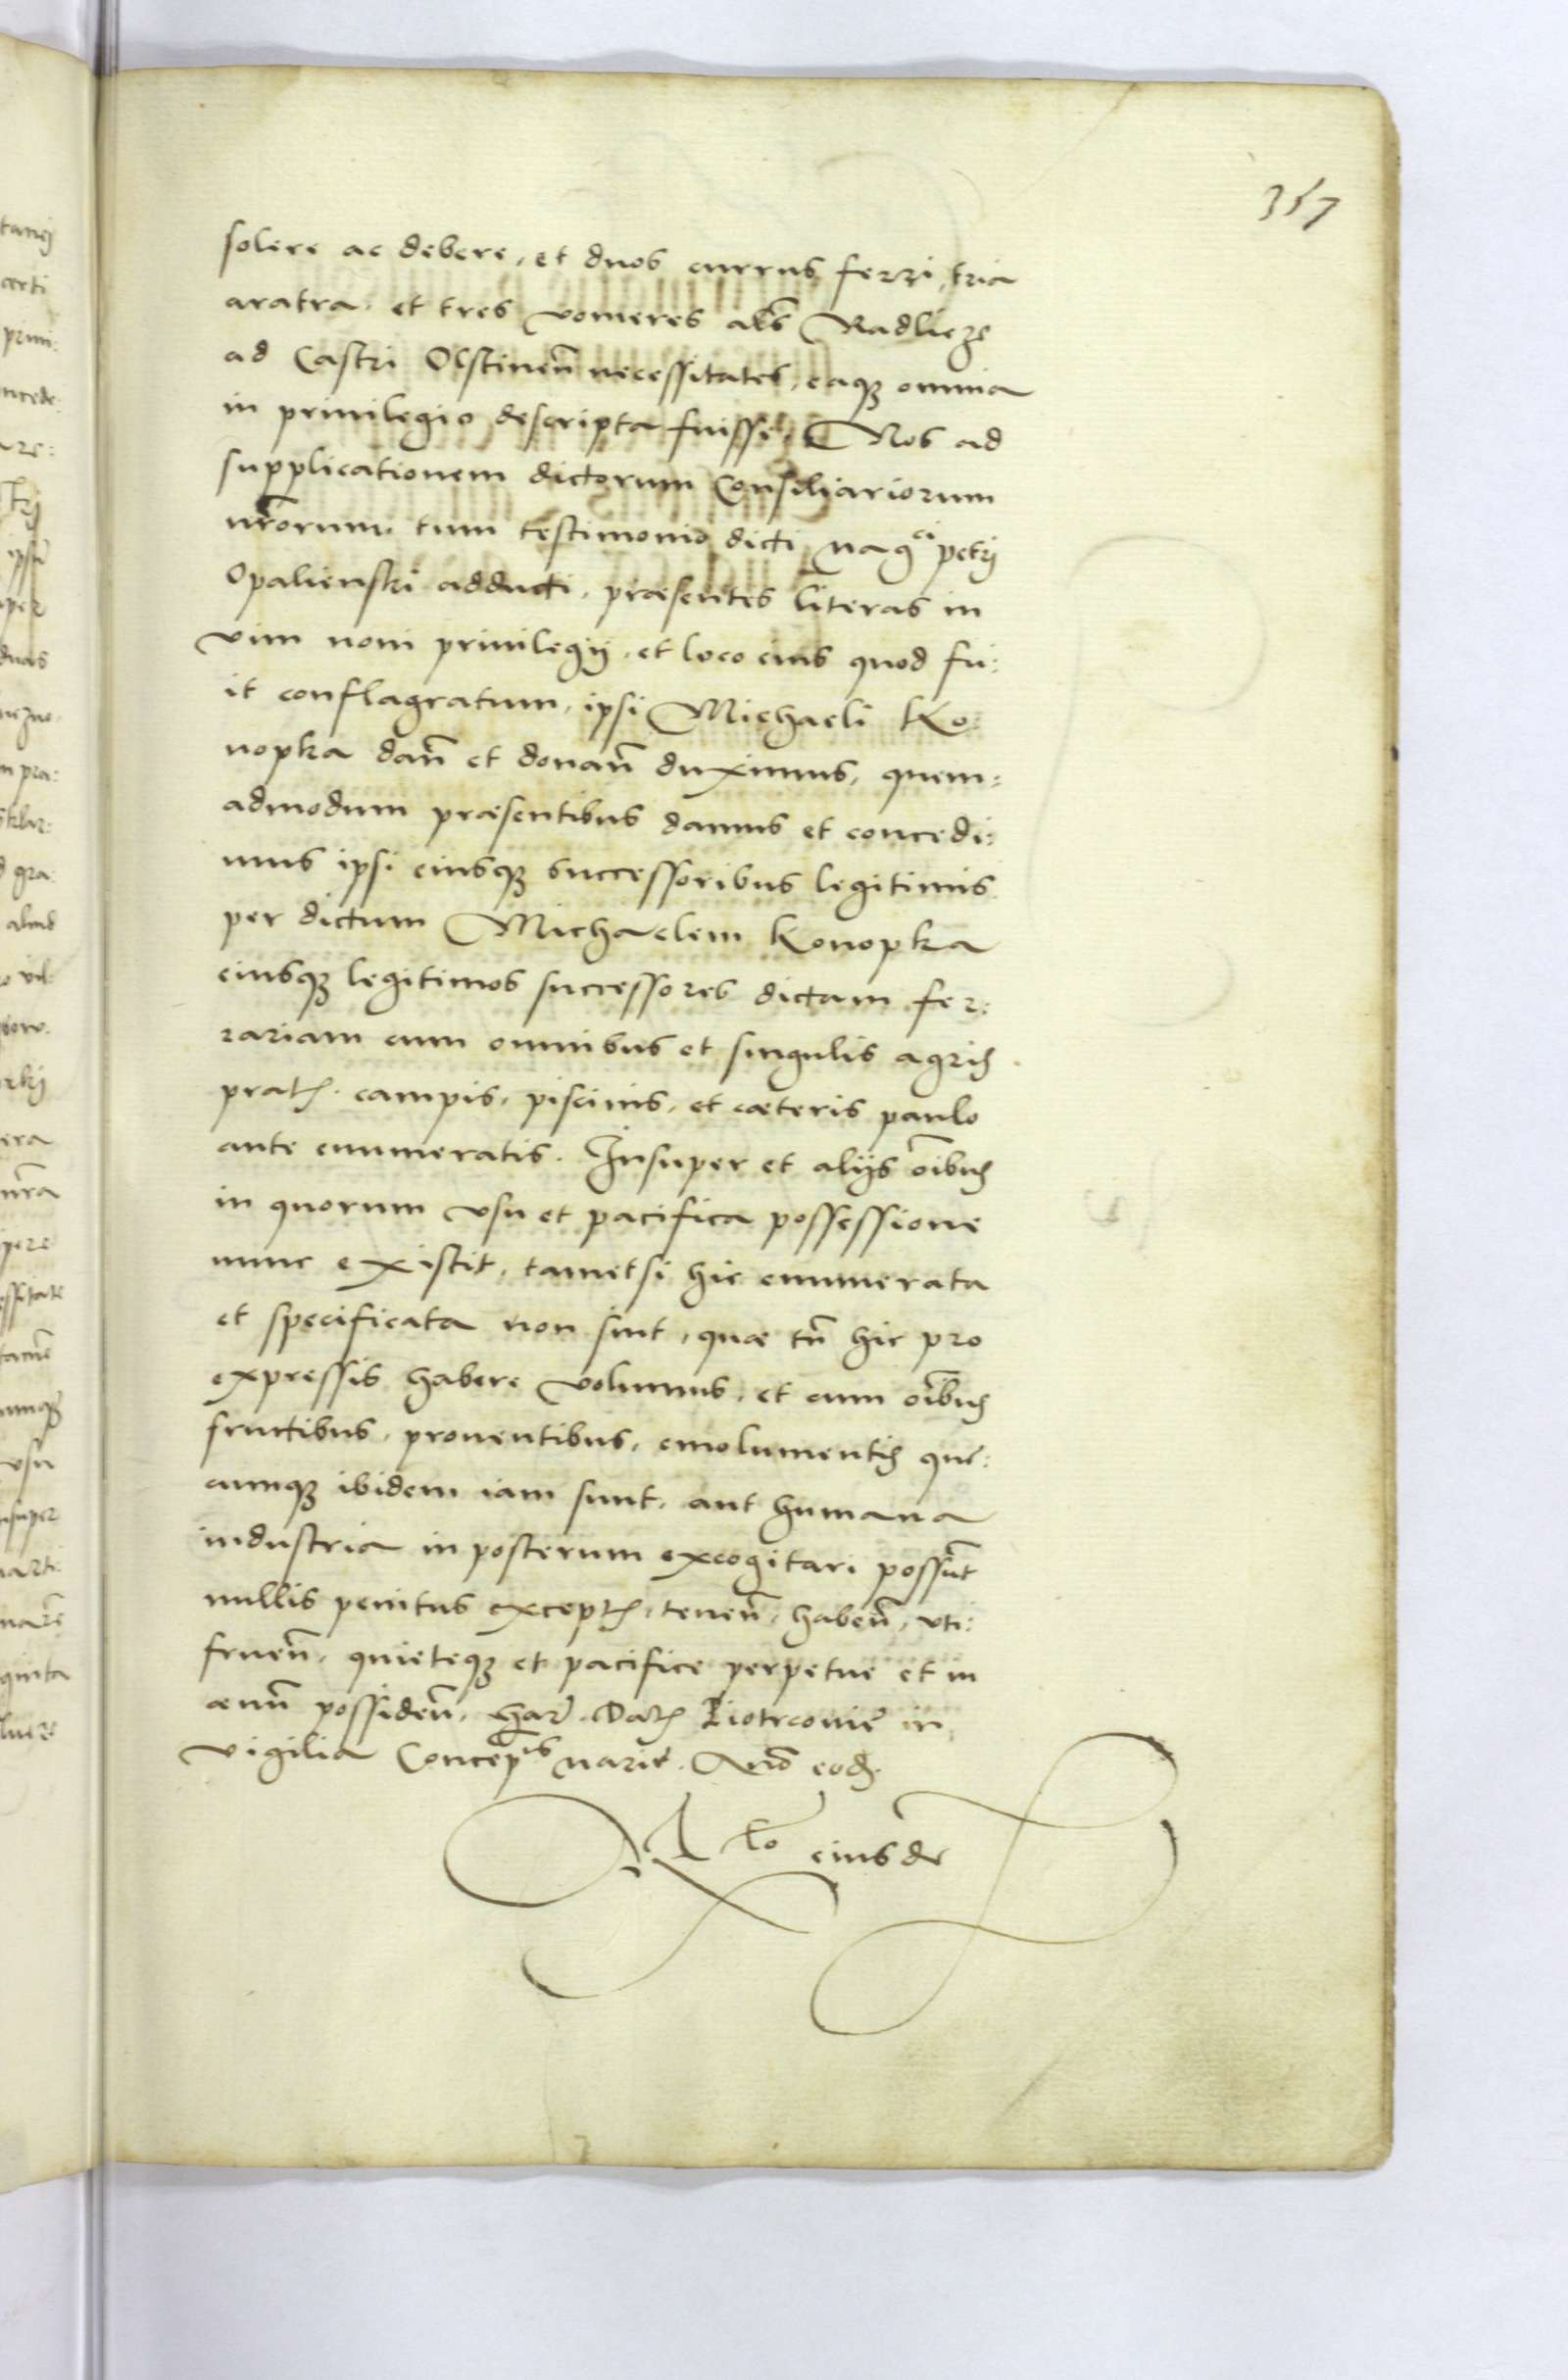 357
solere ac debere, et duos currus ferri, tria
aratra et tres vomeres al̃s Radlicze
ad Castri Olstinen̄ necessitates, eaqȝ omnia
in priuilegio descripta fuisse. Nos ad
supplicationem dictorum Consiliariorum
nr̃orum, tum testimonio dicti Magci petrj
Opalienski adducti, præsentes literas in
vim noui priuilegij, et loco eius quod fu:
it conflagratum, ipsi Michaeli Ko:
nopka dan̄ et donan̄ duximus, quem:
admodum præsentibus damus et concedi:
mus ipsi eiusqȝ successoribus legitimis
per dictum Michaelem Konopka
eiusqȝ legitimos successores dictam fer:
rariam cum omnibus et singulis agris
pratis campis, piscinis, et cæteris paulo
ante enumeratis. Insuper et alijs oĩbus
in quorum vsu et pacifica possessione
nunc existit, tametsi hic enumerata
et specificata non sint, quæ tñ hic pro
expressis habere volumus, et cum oĩbus
fructibus, prouentibus, emolumentis quę:
cunqȝ ibidem iam sunt, aut humana
industria in posterum excogitari possũt
nullis penitus exceptis, tenen̄, haben̄, vti:
fruen̄, quieteqȝ et pacifice perpetue et in
æuũ possiden̄, Har. Datis Piotrcouię in
vigilia Concepcis Marię. Año eod.
eiusde